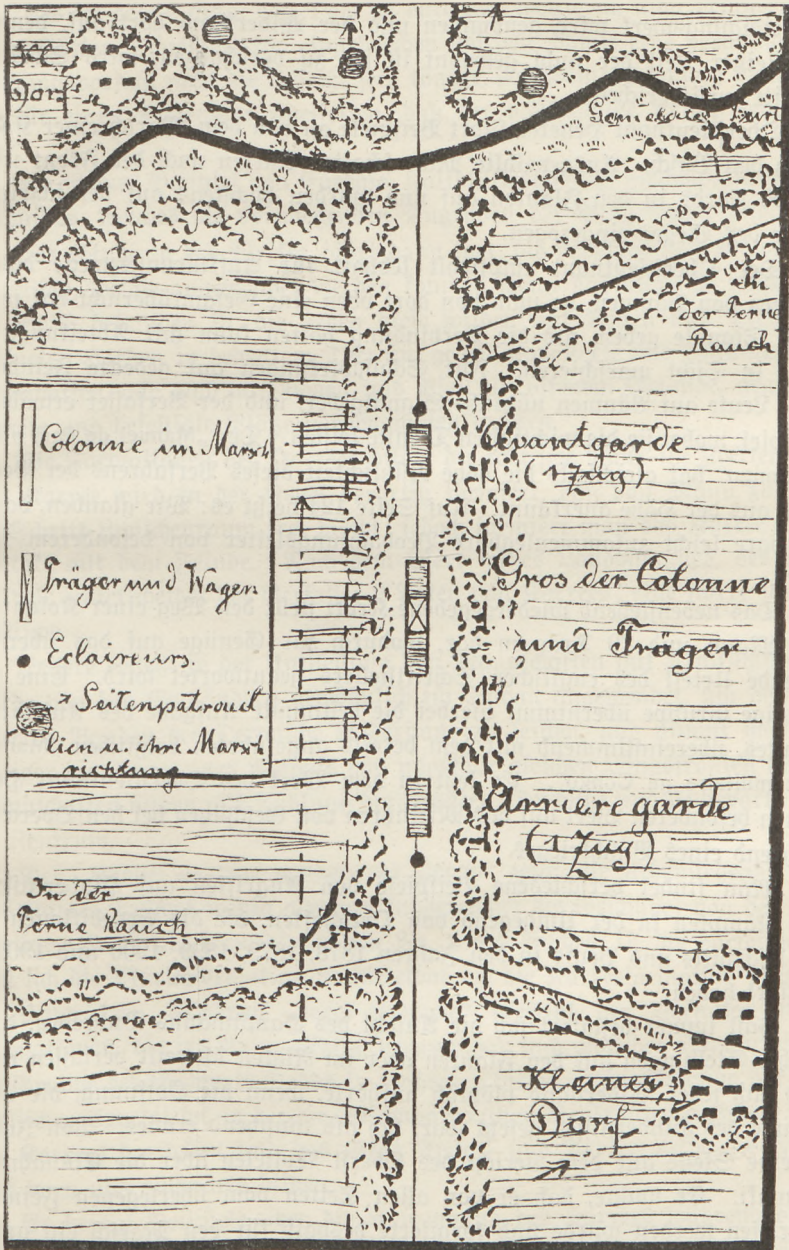 Kl
Dorf
Furt
In
der Ferne
Rauch
Colonne im Marsch
Träger und Wagen
Eclaireurs.
Seitenpatrouil
lien u. ihre Marsch
richtung
Avantgarde
(1 Zug)
Gros der Colonne
und Träger
Arrieregarde
(1 Zug)
In der
Ferne Rauch
Kleines
Dorf